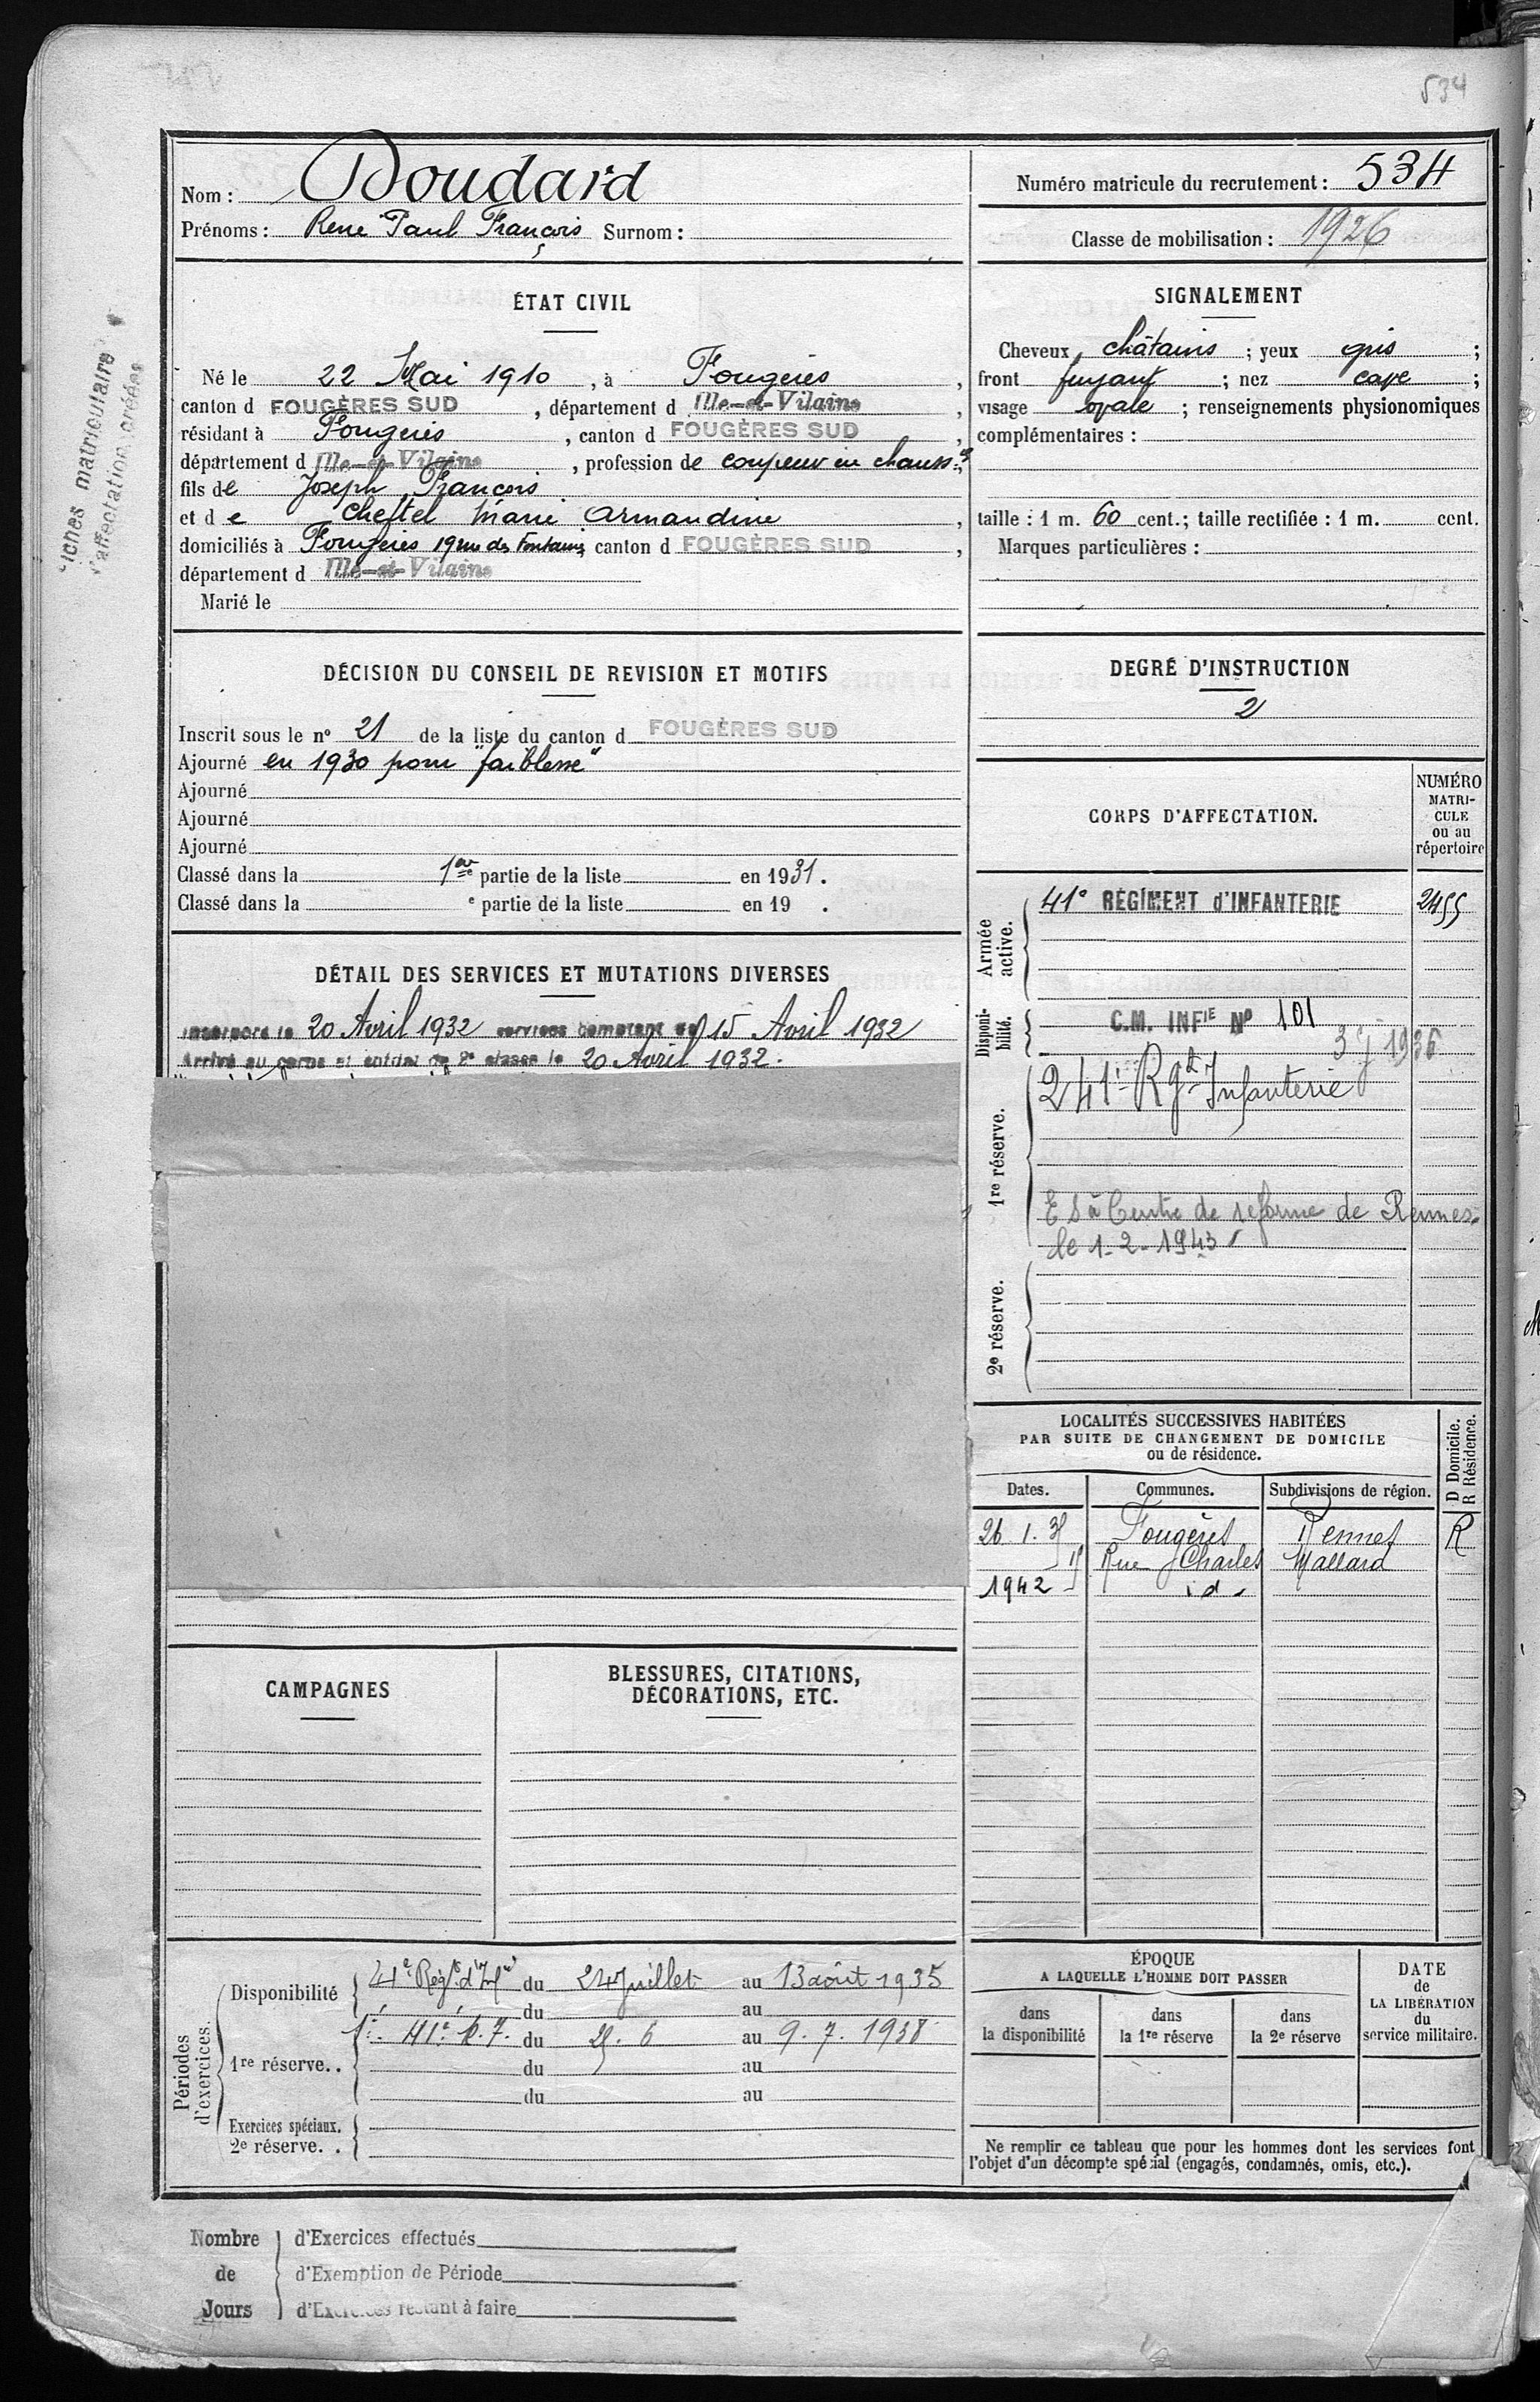 534
Nom : Doudard
Prénoms : René Paul François Surnom :
Numéro matricule du recrutement : 534
Classe de mobilisation : 1926
Fiches matriculaire
d'affectation créées
ÉTAT CIVIL
Né le 22 Mai 1910, à Fougères,
canton d FOUGÈRES SUD, département d Ille-et-Vilaine,
résidant à Fougères, canton d FOUGÈRES SUD,
département d Ille-et-Vilaine, profession de coupeur en chauss.res
fils de Joseph, François
et de Cheftel Marie Armandine,
domiciliés à Fougères 19 rue des Fontaines canton d FOUGÈRES SUD,
département d Ille-et-Vilaine
Marié le
SIGNALEMENT
Cheveux châtains ; yeux gris ;
front fuyant ; nez cave ;
visage ovale ; renseignements physionomiques
complémentaires :
taille : 1 m. 60 cent. ; taille rectifiée : 1 m. cent.
Marques particulières :
DÉCISION DU CONSEIL DE REVISION ET MOTIFS
Inscrit sous le n° 21 de la liste du canton d FOUGÈRES SUD
Ajourné en 1930 pour "faiblesse"
Ajourné
Ajourné
Ajourné
Classé dans la 1ere partie de la liste en 1931.
Classé dans la e partie de la liste en 19 .
DEGRÉ D'INSTRUCTION
2
DÉTAIL DES SERVICES ET MUTATIONS DIVERSES
Incorporé le 20 Avril 1932 services comptant du 15 Avril 1932
Arrivé au corps et soldat de 2e classe le 20 Avril 1932.
CORPS D'AFFECTATION.
NUMÉRO
MATRI-
CULE
ou au
répertoire
Armée
active.
41e RÉGIMENT d'INFANTERIE 2455
Disponi-
bilité.
C.M. INFIE No 101
1936
1re réserve.
241e Rgt Infanterie
Centre de réforme de Rennes.
le 1-2-1943
2e réserve.
LOCALITÉS SUCCESSIVES HABITÉES
PAR SUITE DE CHANGEMENT DE DOMICILE
ou de résidence.
Dates.
Communes.
Subdivisions de région.
D Domicile.
R Résidence.
26.1.35 Fougères Rennes R
11 Rue Charles Mallard
1942 id.
CAMPAGNES
BLESSURES, CITATIONS,
DÉCORATIONS, ETC.
Périodes
d'exercices.
Disponibilité
41e Régt d'Infie du 24 Juillet au 13 août 1935
du au
1re réserve..
1e. 41e. R.I. du 6 au 9.7.1938
du au
du au
Exercices spéciaux.
2e réserve. .
ÉPOQUE
A LAQUELLE L'HOMME DOIT PASSER
dans
la disponibilité
dans
la 1re réserve
dans
la 2e réserve
DATE
de
LA LIBÉRATION
du
service militaire.
Ne remplir ce tableau que pour les hommes dont les services font
l'objet d'un décompte spécial (engagés, condamnés, omis, etc.).
Nombre
de
Jours
d'Exercices effectués
d'Exemption de Période
d'Exercices restant à faire